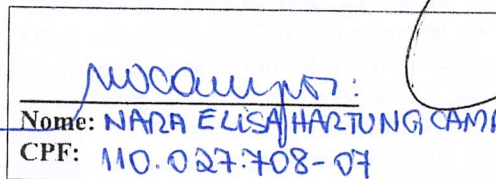 Nome: NARA ELISA HARTUNG CAMP
CPF: 110.027.708-07